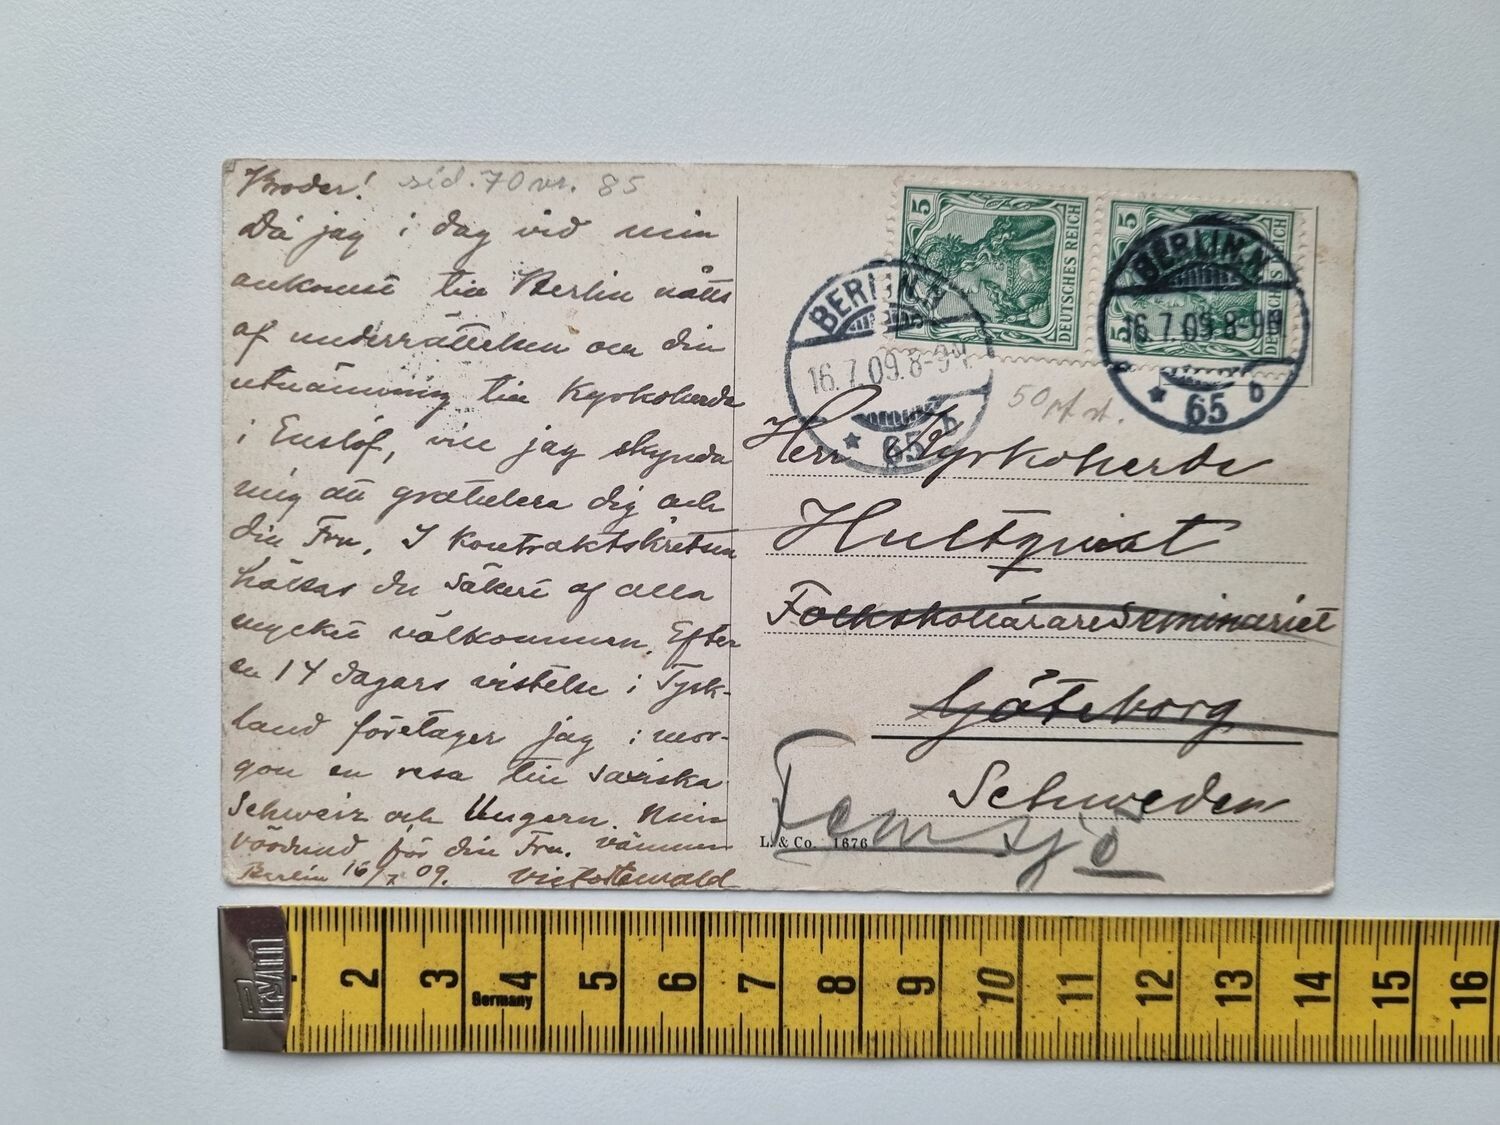 Broder! sid. 70 vr. 85
Då jag i dag vid min
ankomst till Berlin nåtts
af underrättelsen om din
utnämning till Kyrkoherde
i Enslöf, vill jag skynda
mig att gratulera dig och
din Fru. I Kontraktskretsen
hälsas du säkert af alla
mycket välkommen. Efter
en 14 dagars vistelse i Tysk-
land företager jag i mor-
gon en resa till saxiska
Schweiz och Ungern. Min
vördnad för din Fru. vännen
Berlin 16/7 09. Victor Ewald
5
DEUTSCHES REICH
5
5
BERLIN.N.
16.7.09.8-9
65
b
BERLIN.N.
16.7.09.8-9
65
b
50
Herr Kyrkoherde
Hultqvist
Folkskollärareseminariet
Göteborg
Schweden
Femsjö
L. & Co. 1676
Prym
2 3 4 5 6 7 8 9 10 11 12 13 14 15 16
Germany